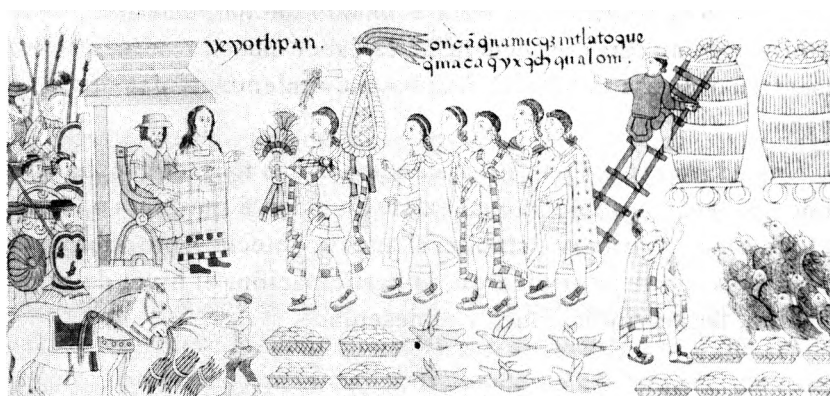 veyotlipan.
oncã q̃namicqz̃ intlatoque
q̃maca q̃ yx q̃ch qualoni.